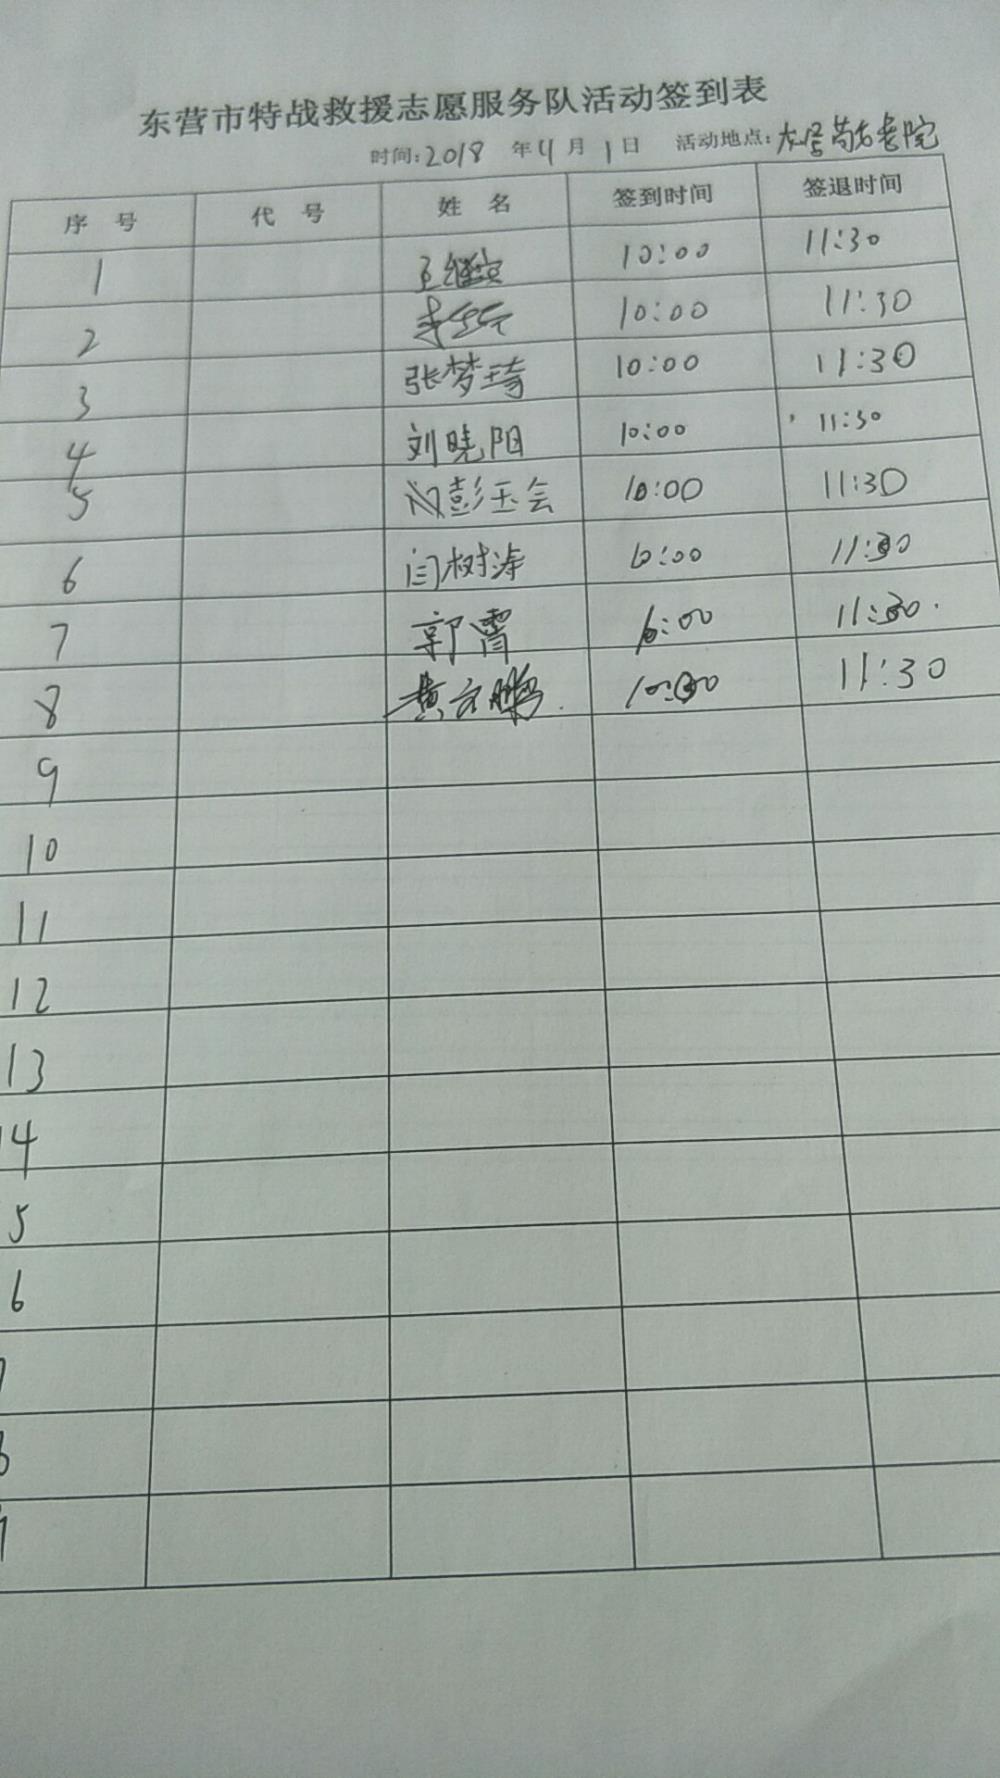 东营市特战救援志愿服务队活动签到表
时间:2018 年4月1日 活动地点:
序 号 代 号 姓 名 签到时间 签退时间
1 10:00 11:30
2 10:00 11:30
3 张梦琦 10:00 11:30
4 刘晓阳 10:00 11:30
5 彭玉会 10:00 11:30
6 闫树涛 10:00 11:30
7 郭霄 10:00 11:30
8 10:00 11:30
9
10
11
12
13
14
5
6